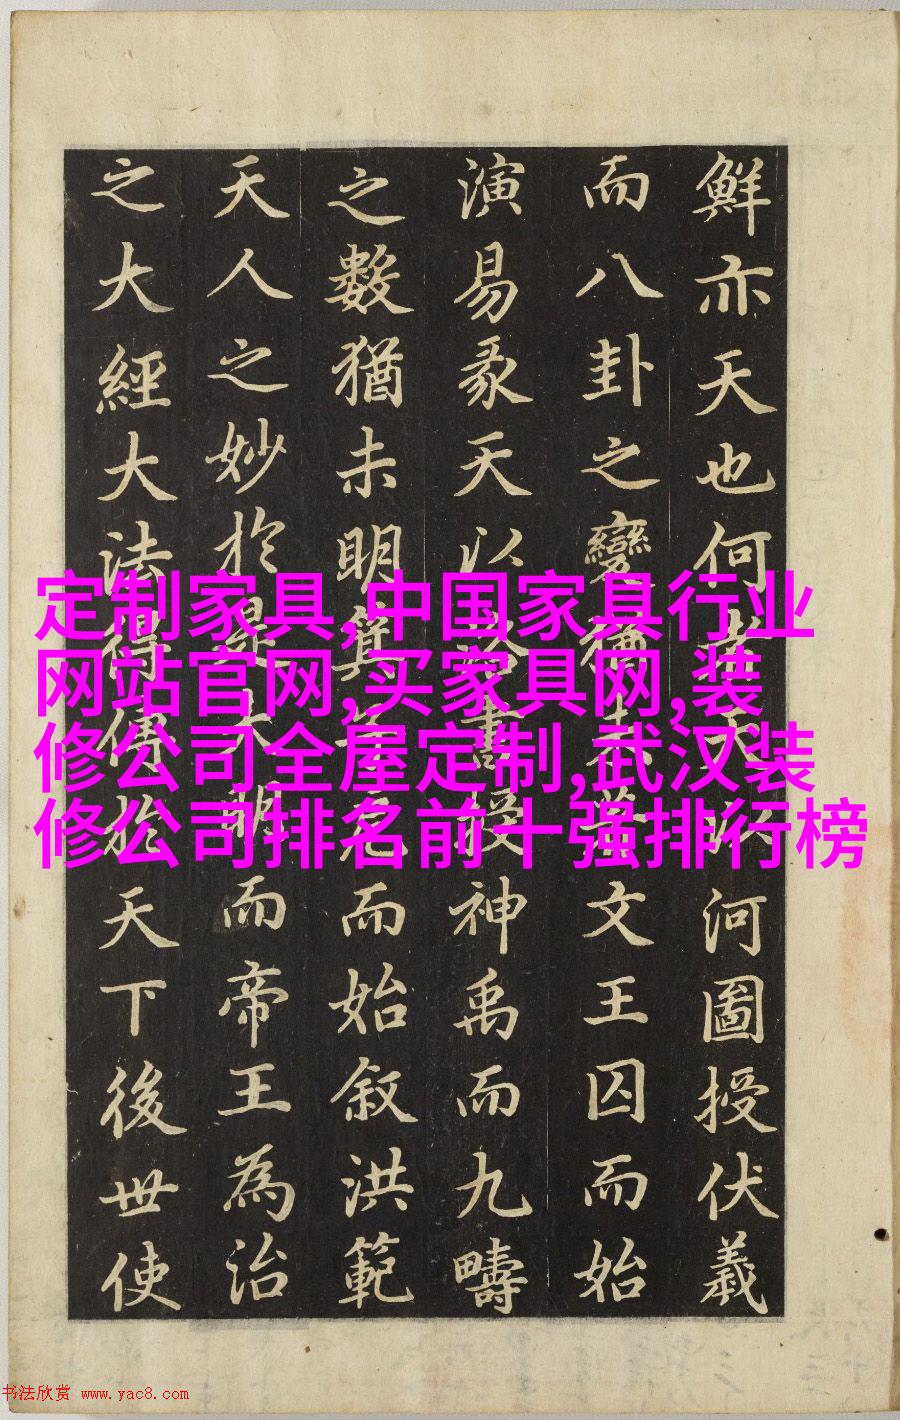 鮮亦天也何者天以河圖授伏羲
而八卦之變猶未文王囚而始
演易彖天以洛書授神禹而九疇
之數猶未明箕子而始叙洪範
天人之妙於是大明而帝王為治
之大經大法得傳於天下後世使
定制家具,中国家具行业
网站官网,买家具网,装
修公司全屋定制,武汉装
修公司排名前十强排行榜
书法欣赏 www.yac8.com